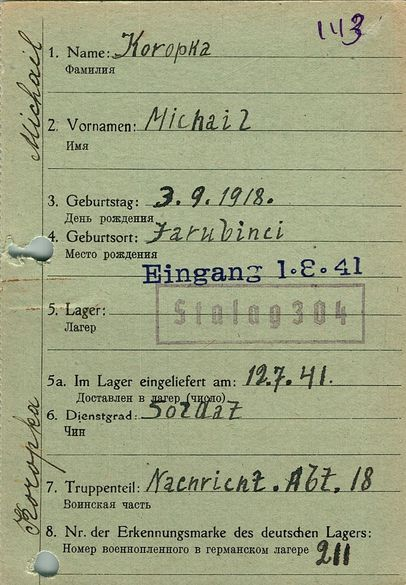 143
Michail
1. Name: Koropka
Фамилия
2. Vornamen: Michail
Имя
3. Geburtstag: 3.9.1918.
День рождения
4. Geburtsort: Jarubinci
Место рождения
Eingang 1.8.41
5. Lager: Stalag 304
Лагер
5a. Im Lager eingeliefert am: 12.7.41.
Доставлен в лагер (число)
6. Dienstgrad: Soldat
Чин
Koropka
7. Truppenteil: Nachricht. Abt. 18
Воинская часть
8. Nr. der Erkennungsmarke des deutschen Lagers:
Номер военнопленного в германском лагере 211